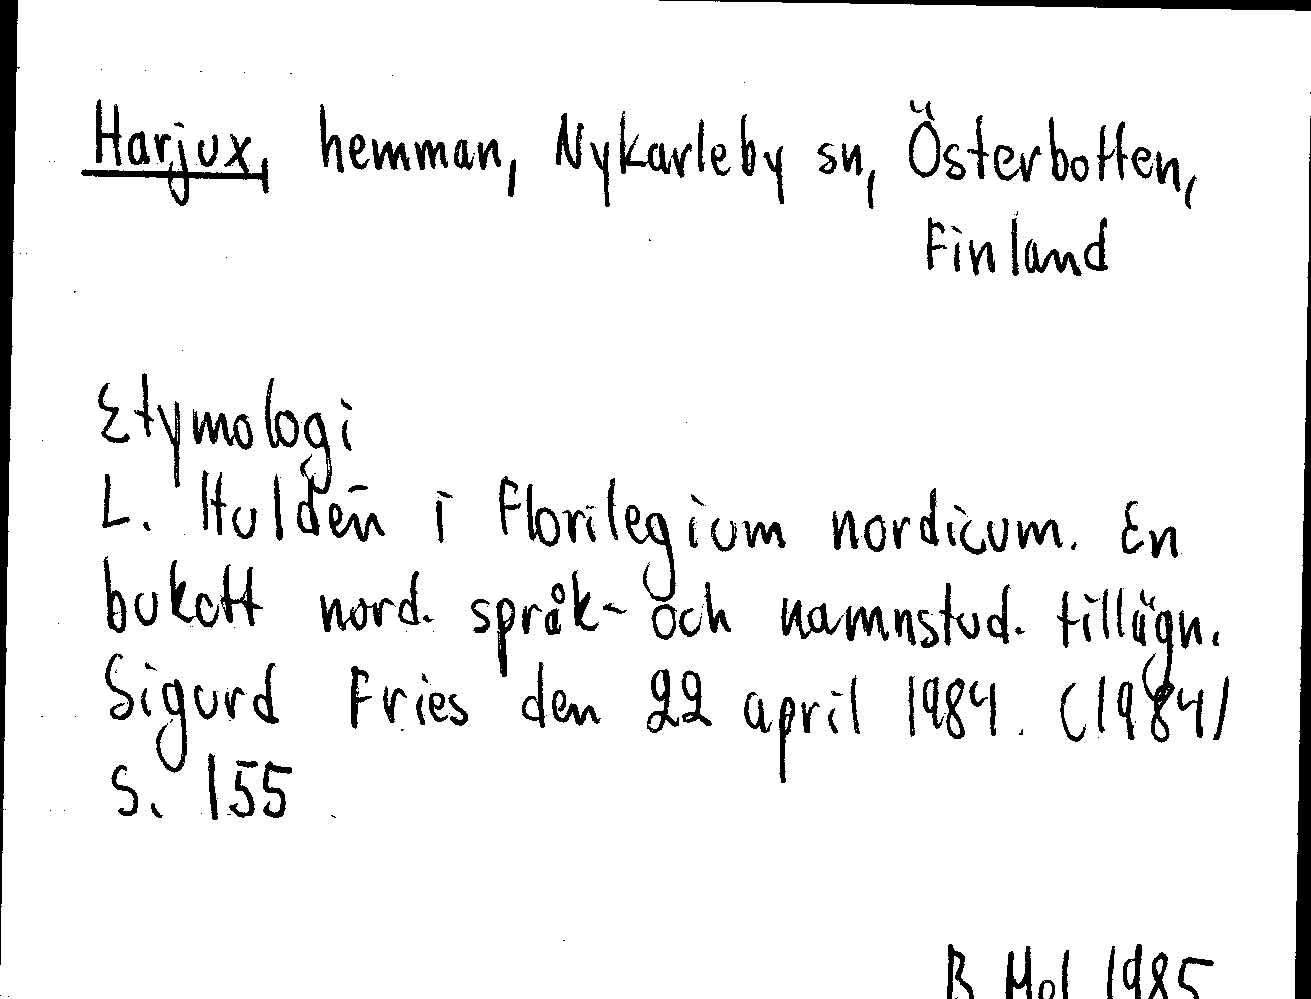 Harjux, hemman, Nykarleby sn, Österbotten,
Finland
Etymologi
L. Huldén i Florilegium nordicum. En
bukett nord. språk- och namnstud. tillägn.
Sigurd Fries den 22 april 1984. (1984)
s. 155
B Mol 1985